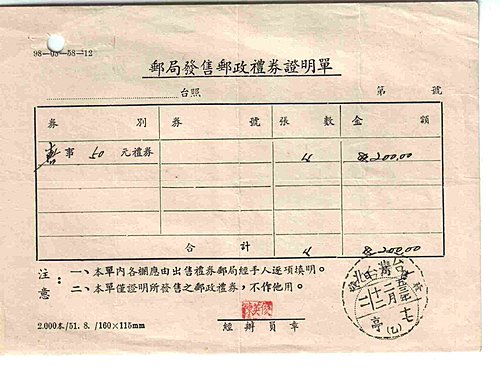 98—05—58—12
郵局發售郵政禮券證明單
台照 第 號
券別 券號 張數 金額
事 50 元禮券 4 200.00
合計 4 200.00
注意：一、本單內各欄應由出售禮券郵局經手人逐項填明。
二、本單僅證明所發售之郵政禮券，不作他用。
2.000本/51. 8. /160×115mm
經辦員章